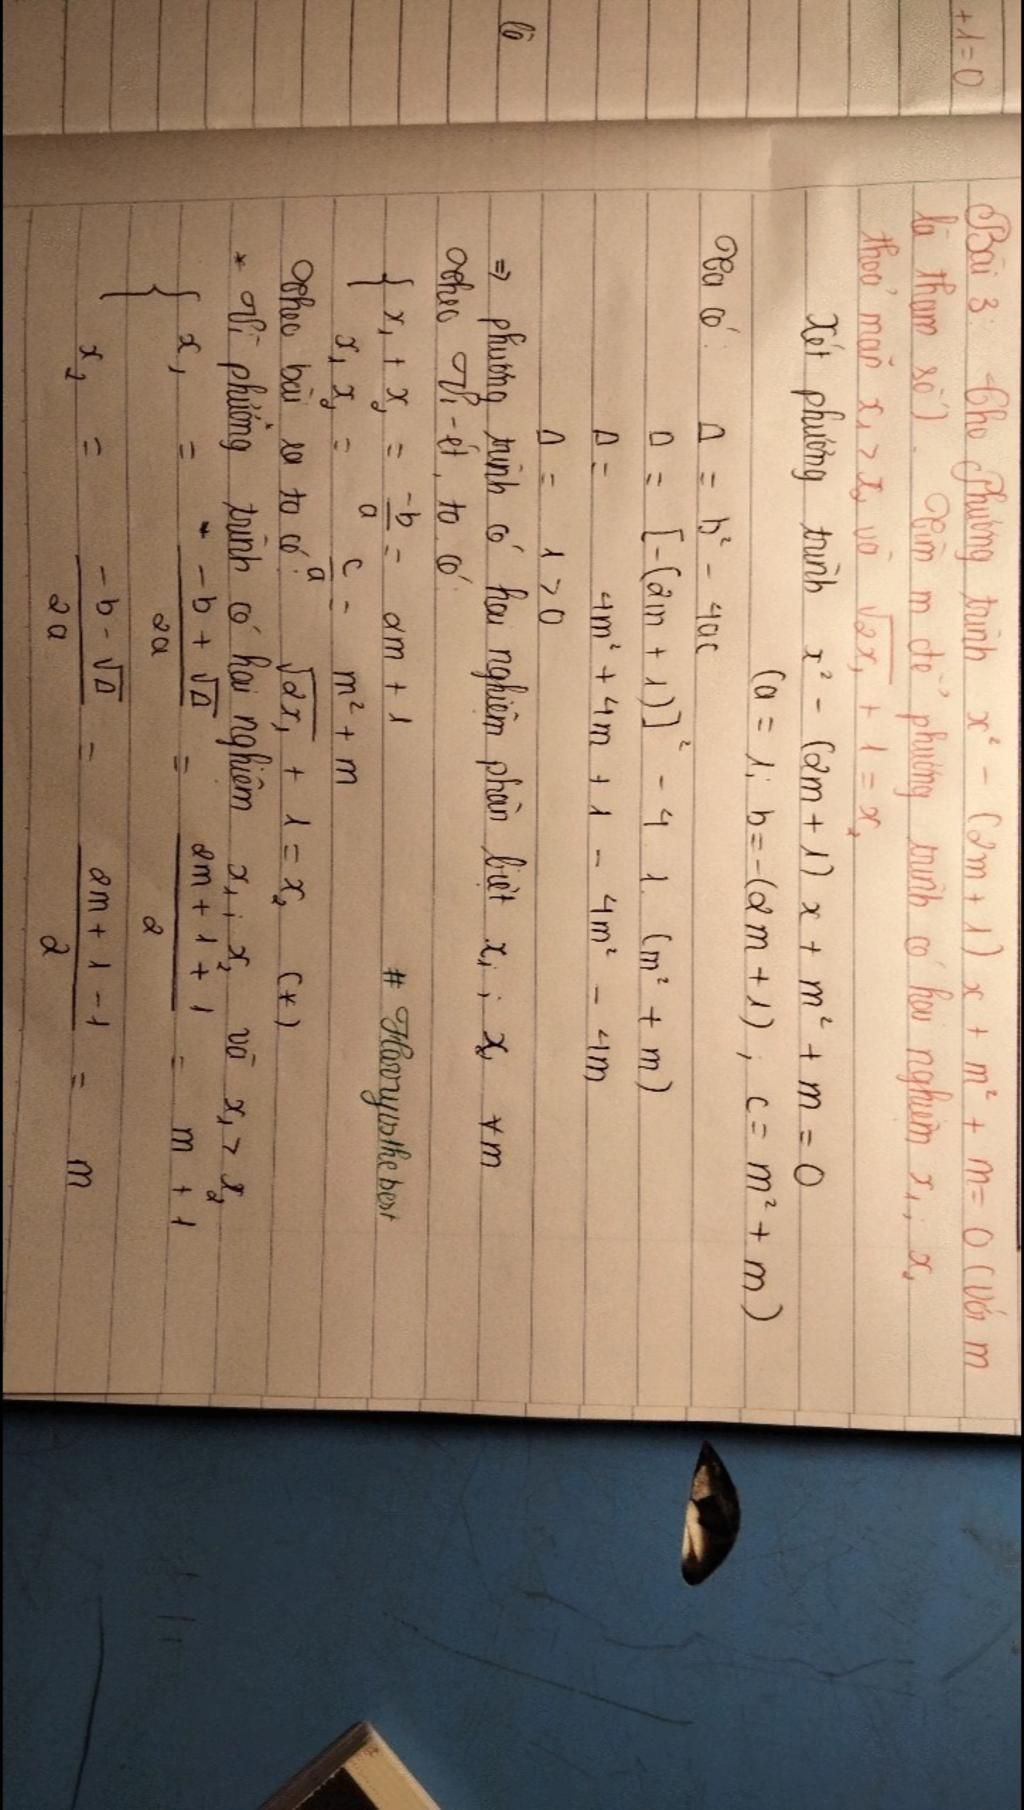 +1=0
là
Bài 3: Cho Phương trình x² - (2m + 1) x + m² + m = 0 (Với m
là tham số). Tìm m để phương trình có hai nghiệm x₁; x₂
thoả mãn x₁ > x₂ và √2x₁ + 1 = x₂
Xét phương trình x² - (2m + 1) x + m² + m = 0
(a = 1; b = -(2m + 1); c = m² + m)
Ta có: Δ = b² - 4ac
Δ = [-(2m + 1)]² - 4 . 1 . (m² + m)
Δ = 4m² + 4m + 1 - 4m² - 4m
Δ = 1 > 0
⇒ phương trình có hai nghiệm phân biệt x₁; x₂ ∀m
Theo Vi-ét, ta có:
{ x₁ + x₂ = -b/a = 2m + 1
x₁ x₂ = c/a = m² + m
# Hoanyusthebest
Theo bài ra ta có: √2x₁ + 1 = x₂ (*)
* Vì phương trình có hai nghiệm x₁; x₂ và x₁ > x₂
{ x₁ = (-b + √Δ)/2a = (2m + 1 + 1)/2 = m + 1
x₂ = (-b - √Δ)/2a = (2m + 1 - 1)/2 = m